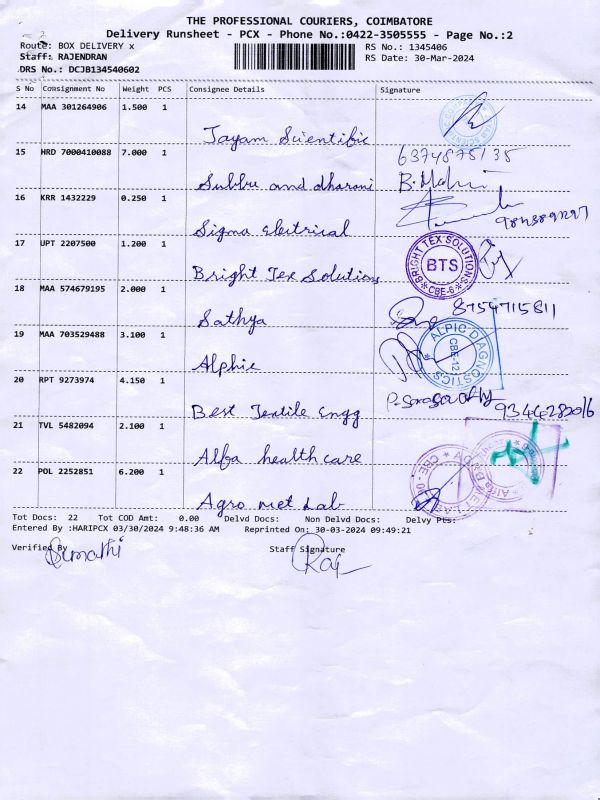 THE PROFESSIONAL COURIERS, COIMBATORE
Delivery Runsheet - PCX - Phone No.:0422-3505555 - Page No.:2
Route: BOX DELIVERY x
RS No.: 1345406
Staff: RAJENDRAN
RS Date: 30-Mar-2024
DRS No.: DCJB134540602
S No Consignment No Weight PCS Consignee Details Signature
14 MAA 301264906 1.500 1
Jayam Scientific
15 HRD 7000410088 7.000 1
6374878135
Subbu and dharani
16 KRR 1432229 0.250 1
Sigma electrical
17 UPT 2207500 1.200 1
BRIGHT TEX SOLUTIONS
BTS
CBE-6
Bright Tex Solutions
18 MAA 574679195 2.000 1
8754715811
Sathya
19 MAA 703529488 3.100 1
ALPIC DIAGNOSTICS
CBE-12
Alphic
20 RPT 9273974 4.150 1
9344282016
Best Textile Engg
21 TVL 5482094 2.100 1
Alfa health care
22 POL 2252851 6.200 1
Agro met Lab
Tot Docs: 22 Tot COD Amt: 0.00 Delvd Docs: Non Delvd Docs: Delvy Pts:
Entered By :HARIPCX 03/30/2024 9:48:36 AM Reprinted On: 30-03-2024 09:49:21
Verified By
Sumathi
Staff Signature
Raj